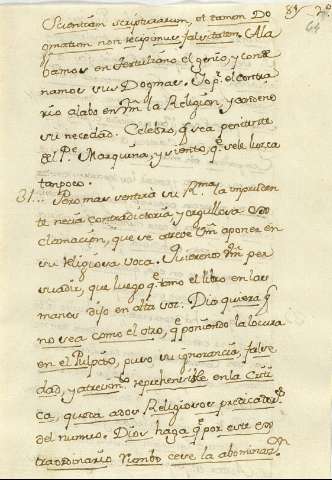 89
64
Scientiam scripturarum, et tamen Do
gmatum non recipimus falsitatem. Ala
bamos en Tertuliano el genio, y conde
namos sus Dogmas. Yo p.r el contra
rio alabo en Vm la Religion, y condeno
su necedad. Celebro, q sea penitente
del P.e Marquina, y siento, q se le luzca
tan poco.
31... Pero mas sentirá su R.ma la impruden
te necia contradictoria, y orgullosa ex
clamacion, que se atreve Vm á poner en
su Religiosa voca. Quierenos Vm per
suadir, que luego q tomó el libro en las
manos dijo en alta voz. Dios quiera q
no sea como el otro, q poniendo la locura
en el Pulpito, puso su ignorancia, false
dad, y atrevim.to reprehensible en la Criti
ca, que saca a dos Religiosos predicador.es
del numero. Dios haga q por este ex
traordinario rumbo cese la abominaz.on